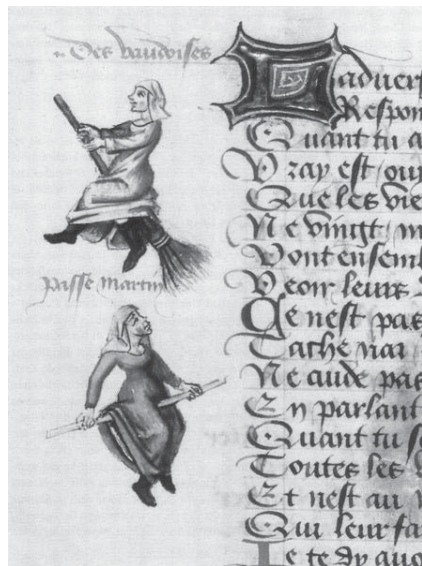 Des vaudoises
passe martin
Ladver
Respon
Quant tu a
Vray est / ouy
Que les vie
Ne vingt / m
Vont ensem
Veoir leurs
Ce nest pas
Tache nay
Ne cuide pas
En parlant
Quant tu s
Toutes les
Et nest au
Qui leur fa
Je te dy auo